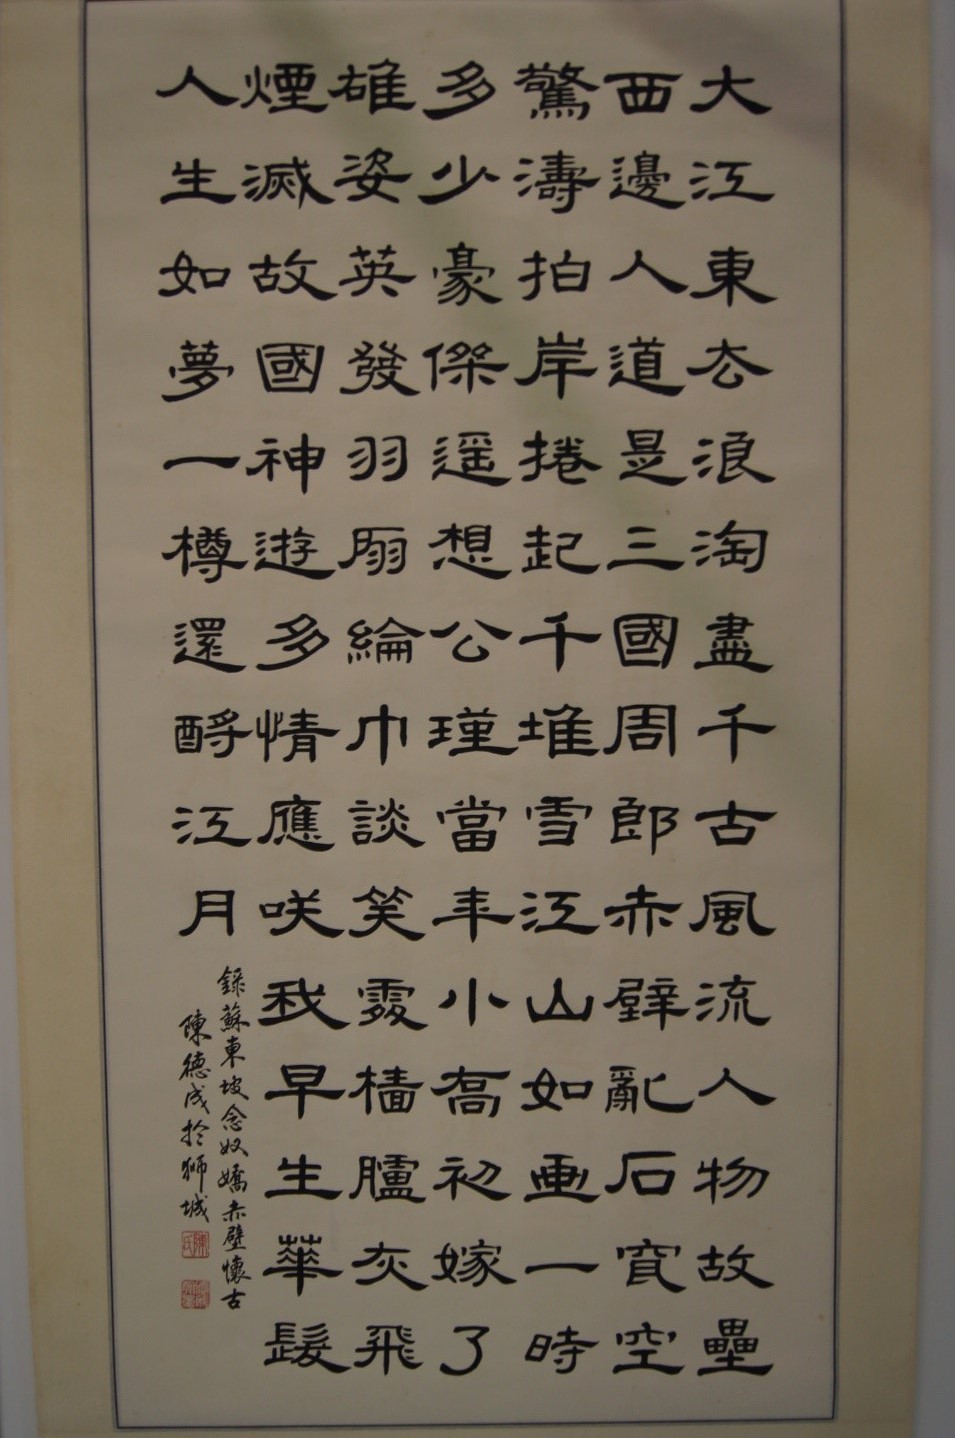 大江東去浪淘盡千古風流人物故壘
西邊人道是三國周郎赤壁亂石穿空
驚濤拍岸捲起千堆雪江山如畫一時
多少豪傑遥想公瑾當年小喬初嫁了
雄姿英發羽扇綸巾談笑間檣艫灰飛
煙滅故國神遊多情應咲我早生華髮
人生如夢一樽還酹江月
錄蘇東坡念奴嬌赤壁懷古
陳德成於獅城